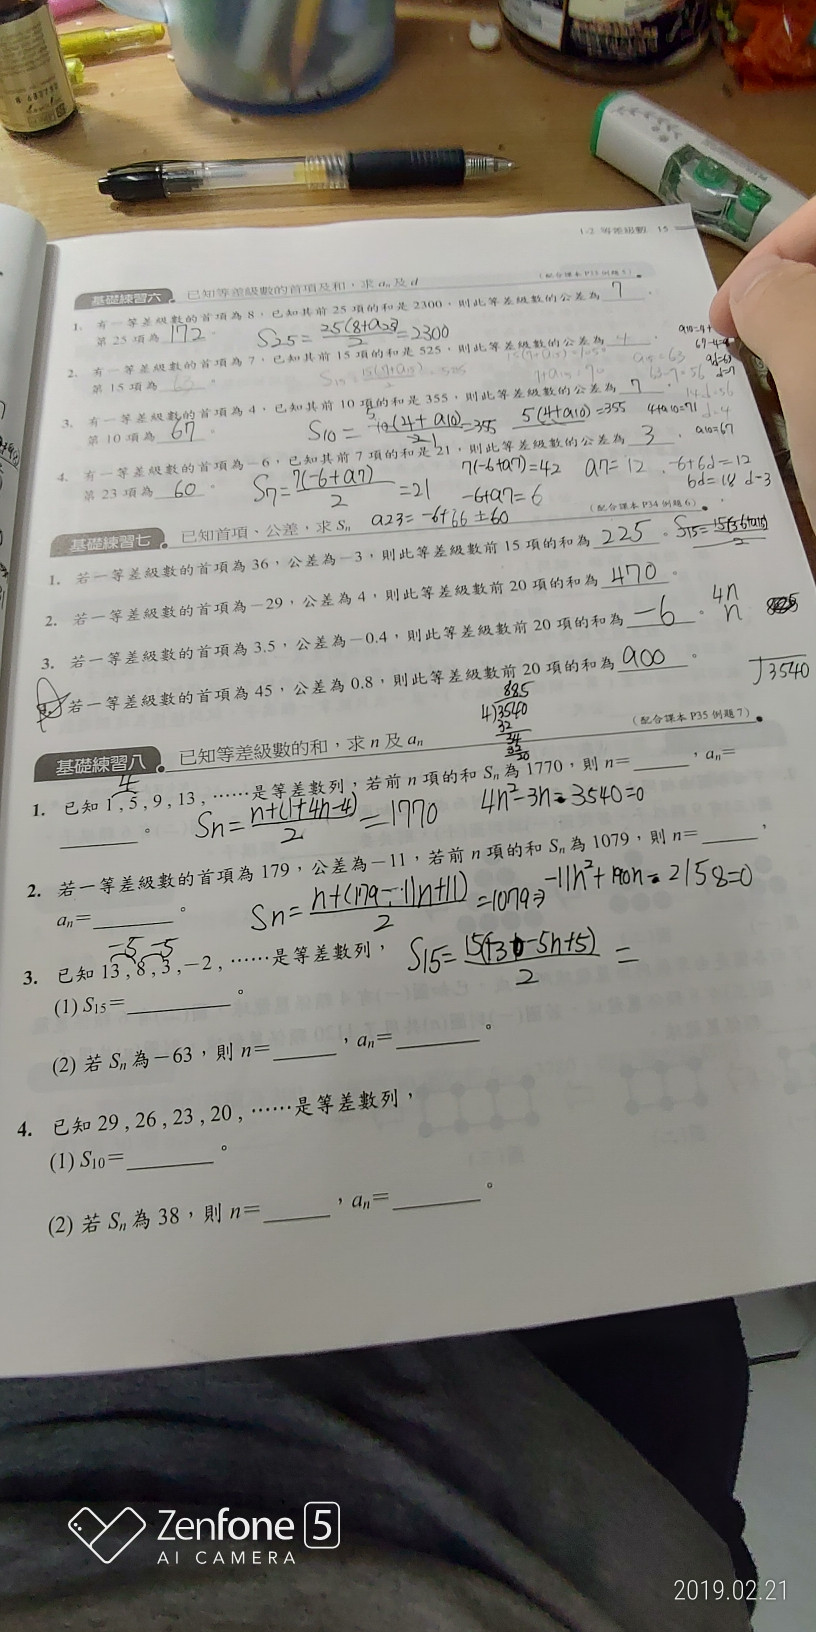 1-2 等差級數 15
基礎練習六 已知等差級數的首項及和，求 aₙ 及 d （配合課本 P33 例題 5）
1. 有一等差級數的首項為 8，已知其前 25 項的和是 2300，則此等差級數的公差為 7 。
第 25 項為 172 。 S25 = 25(8+a25)/2 = 2300
2. 有一等差級數的首項為 7，已知其前 15 項的和是 525，則此等差級數的公差為
第 15 項為 63 。
3. 有一等差級數的首項為 4，已知其前 10 項的和是 355，則此等差級數的公差為 7 。
第 10 項為 67 。 S10 = 10(4+a10)/2 = 355 5(4+a10)=355 4+a10=71 a10=67
4. 有一等差級數的首項為 −6，已知其前 7 項的和是 21，則此等差級數的公差為 3 。
第 23 項為 60 。 S7= 7(−6+a7)/2 =21 7(−6+a7)=42 a7=12 −6+6d=12
−6+a7=6 6d=18 d=3
基礎練習七 已知首項、公差，求 Sₙ a23=−6+66=60 （配合課本 P34 例題 6）
1. 若一等差級數的首項為 36，公差為 −3，則此等差級數前 15 項的和為 225 。
2. 若一等差級數的首項為 −29，公差為 4，則此等差級數前 20 項的和為 470 。
3. 若一等差級數的首項為 3.5，公差為 −0.4，則此等差級數前 20 項的和為 −6 。 4n
n
若一等差級數的首項為 45，公差為 0.8，則此等差級數前 20 項的和為 900 。
3540
885
4)3540
32
34
32
20
基礎練習八 已知等差級數的和，求 n 及 aₙ （配合課本 P35 例題 7）
4
1. 已知 1 , 5 , 9 , 13 , ……是等差數列，若前 n 項的和 Sₙ 為 1770，則 n= ，aₙ=
。 Sn= n+(1+4n−4)/2 =1770 4n²−3n−3540=0
2. 若一等差級數的首項為 179，公差為 −11，若前 n 項的和 Sₙ 為 1079，則 n= ，
aₙ= 。 Sn= n+(179−11n+11)/2 =1079⇒ −11n²+190n−2158=0
−5 −5
3. 已知 13 , 8 , 3 , −2 , ……是等差數列， S15=
(1) S₁₅= 。
(2) 若 Sₙ 為 −63，則 n= ，aₙ= 。
4. 已知 29 , 26 , 23 , 20 , ……是等差數列，
(1) S₁₀= 。
(2) 若 Sₙ 為 38，則 n= ，aₙ= 。
Zenfone 5
AI CAMERA
2019.02.21